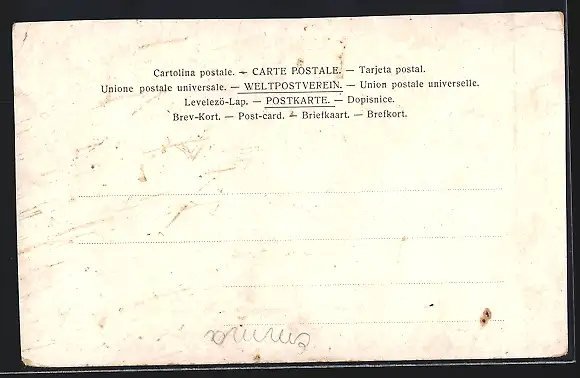 Cartolina postale. — CARTE POSTALE. — Tarjeta postal.
Unione postale universale. — WELTPOSTVEREIN. — Union postale universelle.
Levelező-Lap. — POSTKARTE. — Dopisnice.
Brev-Kort. — Post-card. — Briefkaart. — Brefkort.
emma